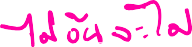 ไม่อันจะไม